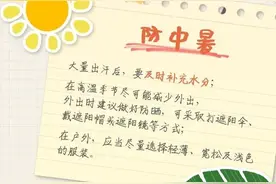 防中暑
大量出汗后，要及时补充水分；
在高温季节尽可能减少外出，
外出时建议做好防晒，可采取打遮阳伞、
戴遮阳帽头遮阳镜等方式；
在户外，应当尽量选择轻薄、宽松及浅色
的服装。